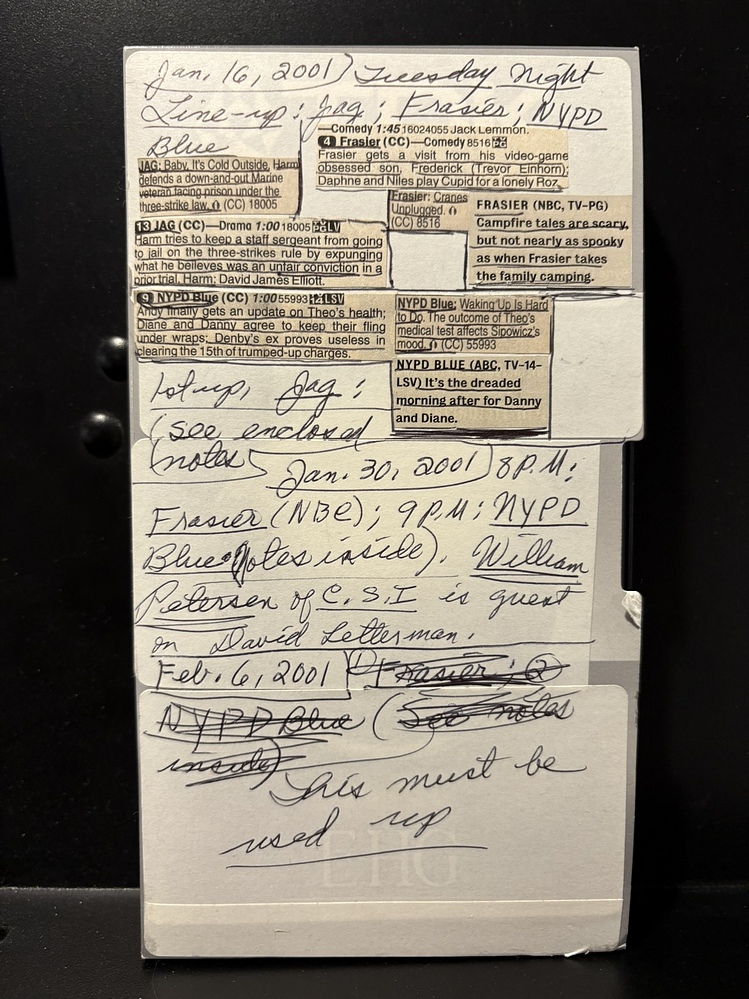 Jan. 16, 2001) Tuesday Night
Line-up: Jag; Frasier; NYPD
Blue
—Comedy 1:45 16024055 Jack Lemmon.
4 Frasier (CC)—Comedy 8516 PG
Frasier gets a visit from his video-game
obsessed son, Frederick (Trevor Einhorn);
Daphne and Niles play Cupid for a lonely Roz.
JAG: Baby, It's Cold Outside. Harm
defends a down-and-out Marine
veteran facing prison under the
three-strike law. (CC) 18005
Frasier: Cranes
Unplugged.
(CC) 8516
FRASIER (NBC, TV-PG)
Campfire tales are scary,
but not nearly as spooky
as when Frasier takes
the family camping.
13 JAG (CC)—Drama 1:00 18005 PG LV
Harm tries to keep a staff sergeant from going
to jail on the three-strikes rule by expunging
what he believes was an unfair conviction in a
prior trial. Harm: David James Elliott.
9 NYPD Blue (CC) 1:00 55993 14 LSV
Andy finally gets an update on Theo's health;
Diane and Danny agree to keep their fling
under wraps; Denby's ex proves useless in
clearing the 15th of trumped-up charges.
NYPD Blue: Waking Up Is Hard
to Do. The outcome of Theo's
medical test affects Sipowicz's
mood. (CC) 55993
NYPD BLUE (ABC, TV-14-
LSV) It's the dreaded
morning after for Danny
and Diane.
1st up, Jag:
(see enclosed
notes)
Jan. 30, 2001) 8 P.M:
Frasier (NBC); 9 P.M: NYPD
Blue (Notes inside). William
Petersen of C.S.I is guest
on David Letterman.
Feb. 6, 2001 ① Frasier; ②
NYPD Blue (See notes
inside)
This must be
used up
EHG